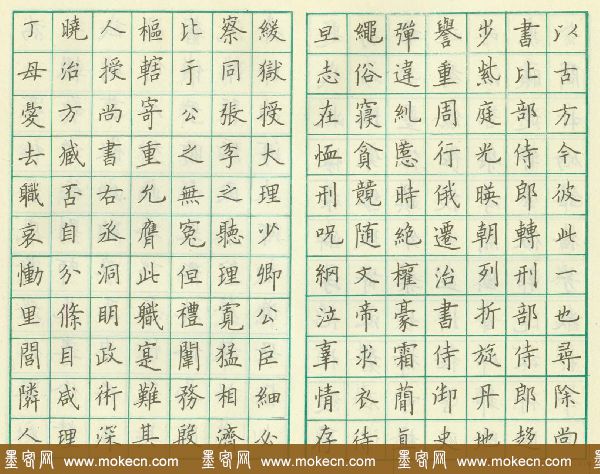 以古方今彼此一也尋除尚
書比部侍郎轉刑部侍郎趍
步紫庭光暎朝列折旋丹地
譽重周行俄遷治書侍御史
彈違糺慝時絕權豪霜簡直
繩俗寢貪競随文帝求衣待
旦志在恤刑咒網泣辜情存
緩獄授大理少卿公巨細必
察同張李之聽理寬猛相濟
比于公之無冤但禮闈務殷
樞轄寄重允膺此職寔難其
人授尚書右丞洞明政術深
曉治方臧否自分條目咸理
丁母憂去職哀慟里閭隣人
墨客网 www.mokecn.com 墨客网 www.mokecn.com 墨客网 www.mokecn.com